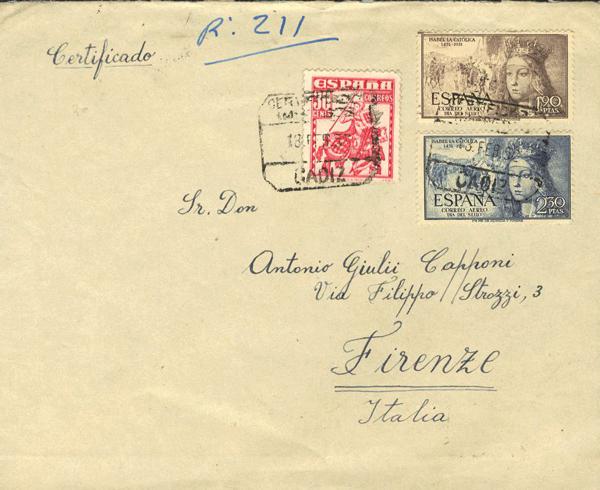 R. 211
Certificado
ESPAÑA
CORREOS
CADIZ
ISABEL LA CATÓLICA
1451-1951
ESPAÑA
CORREO AEREO
DIA DEL SELLO
1'90 PTAS
ISABEL LA CATÓLICA
FEB
CADIZ
ESPAÑA
CORREO AEREO
DIA DEL SELLO
2'30 PTAS
Sr. Don
Antonio Giulii Capponi
Via Filippo Strozzi, 3
Firenze
Italia